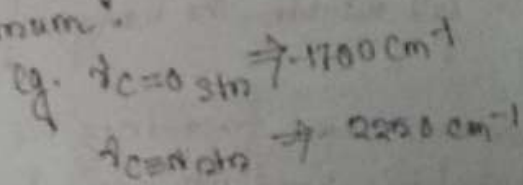 num.
eg. νC=O str ⇒ 1700 cm⁻¹
νC≡N str ⇒ 2250 cm⁻¹